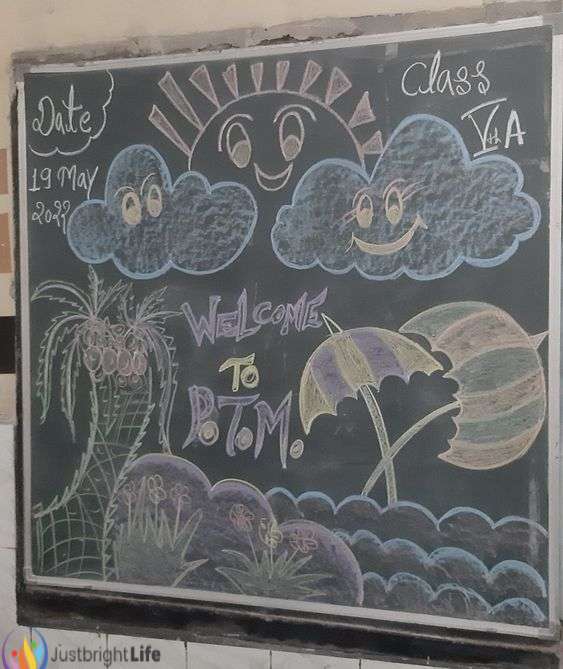 Date
19 May
2022
Class
Vth A
WELCOME
TO
P.T.M.
JustbrightLife